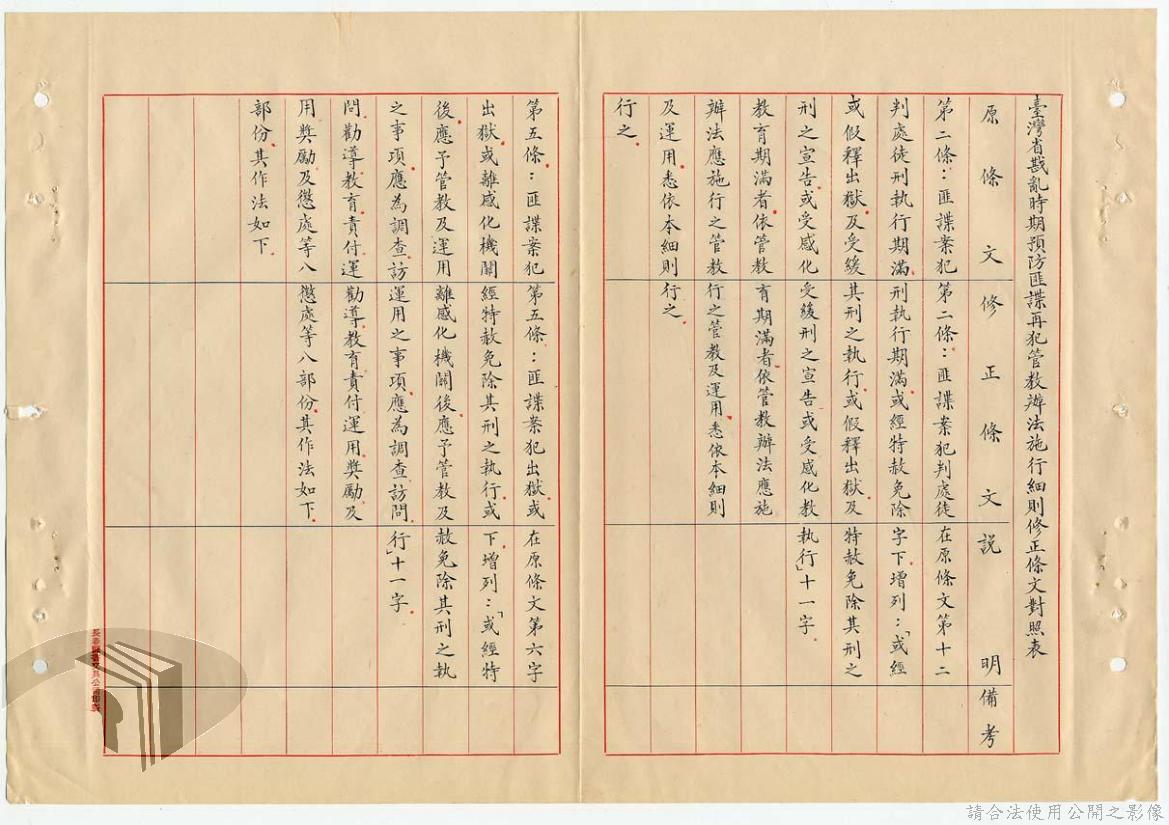 臺灣省戡亂時期預防匪諜再犯管教辦法施行細則修正條文對照表
原條文
修正條文
說明
備考
第二條：匪諜案犯
判處徒刑執行期滿
或假釋出獄，及受緩
刑之宣告，或受感化
教育期滿者，依管教
辦法應施行之管教
及運用，悉依本細則
行之。
第二條：匪諜案犯判處徒
刑執行期滿，或經特赦免除
其刑之執行，或假釋出獄及
受緩刑之宣告或受感化教
育期滿者，依管教辦法應施
行之管教及運用，悉依本細則
行之。
在原條文第十二
字下，增列：「或經
特赦免除其刑之
執行」十一字。
第五條：匪諜案犯
出獄，或離感化機關
後，應予管教及運用
之事項，應為調查、訪
問、勸導、教育、責付、運
用、獎勵及懲處等八
部份，其作法如下。
第五條：匪諜案犯出獄，或
經特赦免除其刑之執行，或
離感化機關後，應予管教及
運用之事項，應為調查、訪問、
勸導、教育、責付、運用、獎勵及
懲處等八部份，其作法如下。
在原條文第六字
下，增列：「或經特
赦免除其刑之執
行」十一字。
請合法使用公開之影像